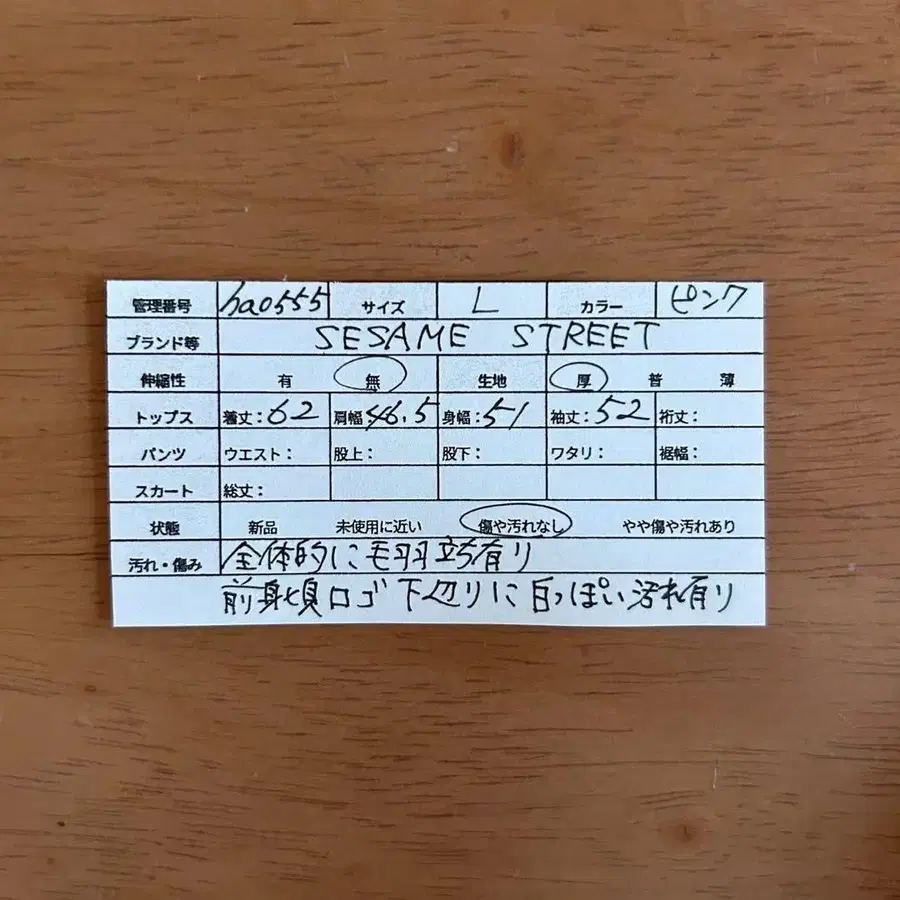 管理番号 ha0555 サイズ L カラー ピンク
ブランド等 SESAME STREET
伸縮性 有 無 生地 厚 普 薄
トップス 着丈:62 肩幅:46.5 身幅:51 袖丈:52 裄丈:
パンツ ウエスト: 股上: 股下: ワタリ: 裾幅:
スカート 総丈:
状態 新品 未使用に近い 傷や汚れなし やや傷や汚れあり
汚れ・傷み 全体的に毛羽立ち有り
前身頃ロゴ下辺りに白っぽい汚れ有り